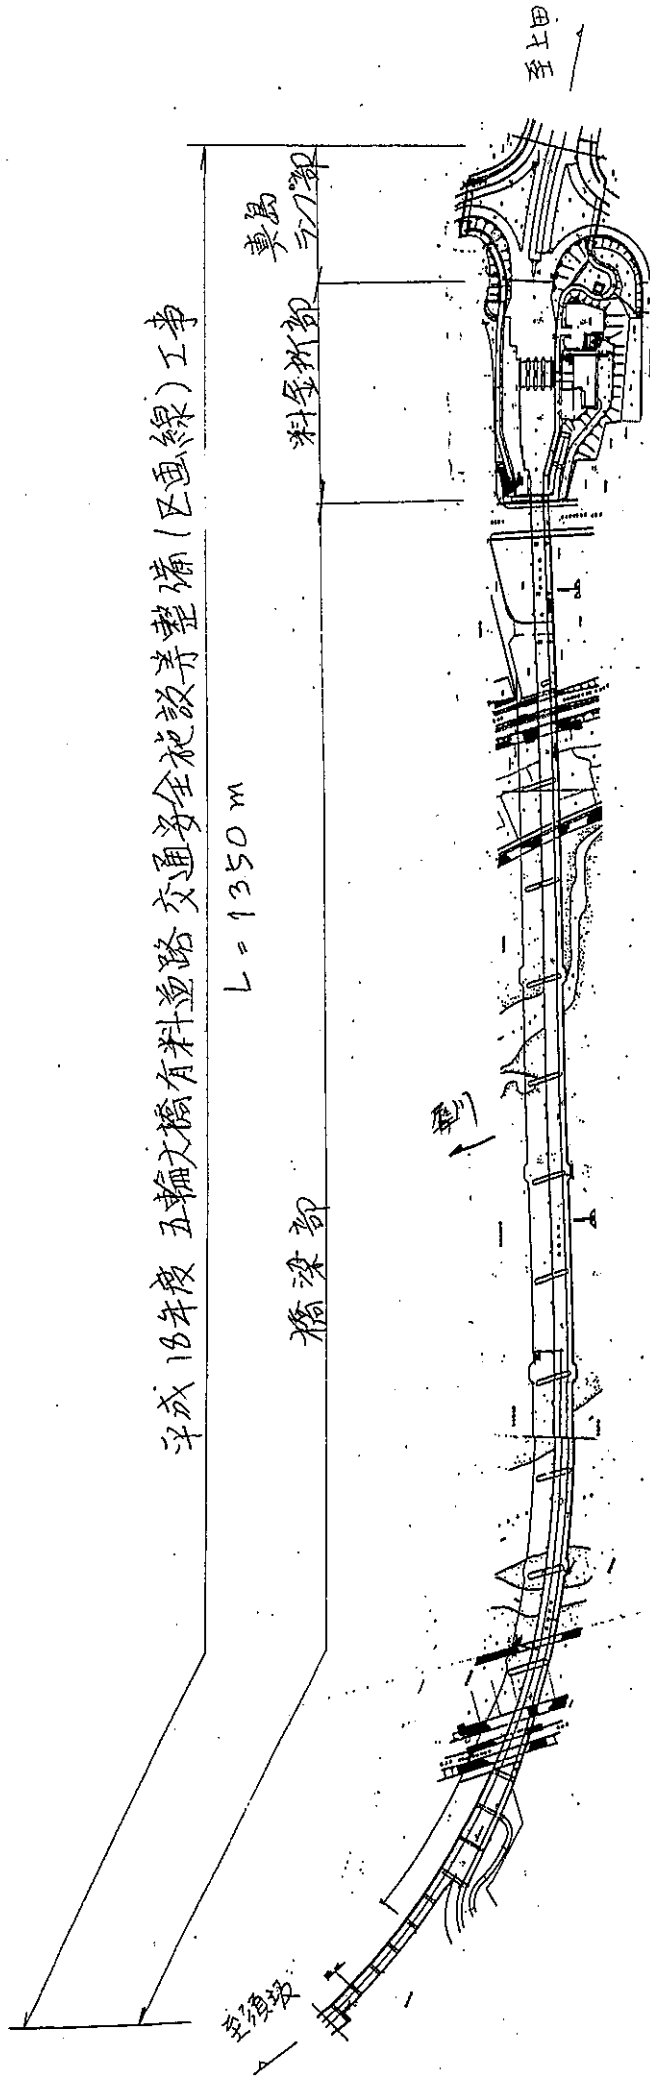 平成18年度 五輪大橋有料道路 交通安全施設等整備(区画線)工事
L=1350m
橋梁部
料金所部
真島
ランプ部
至須坂
至上田